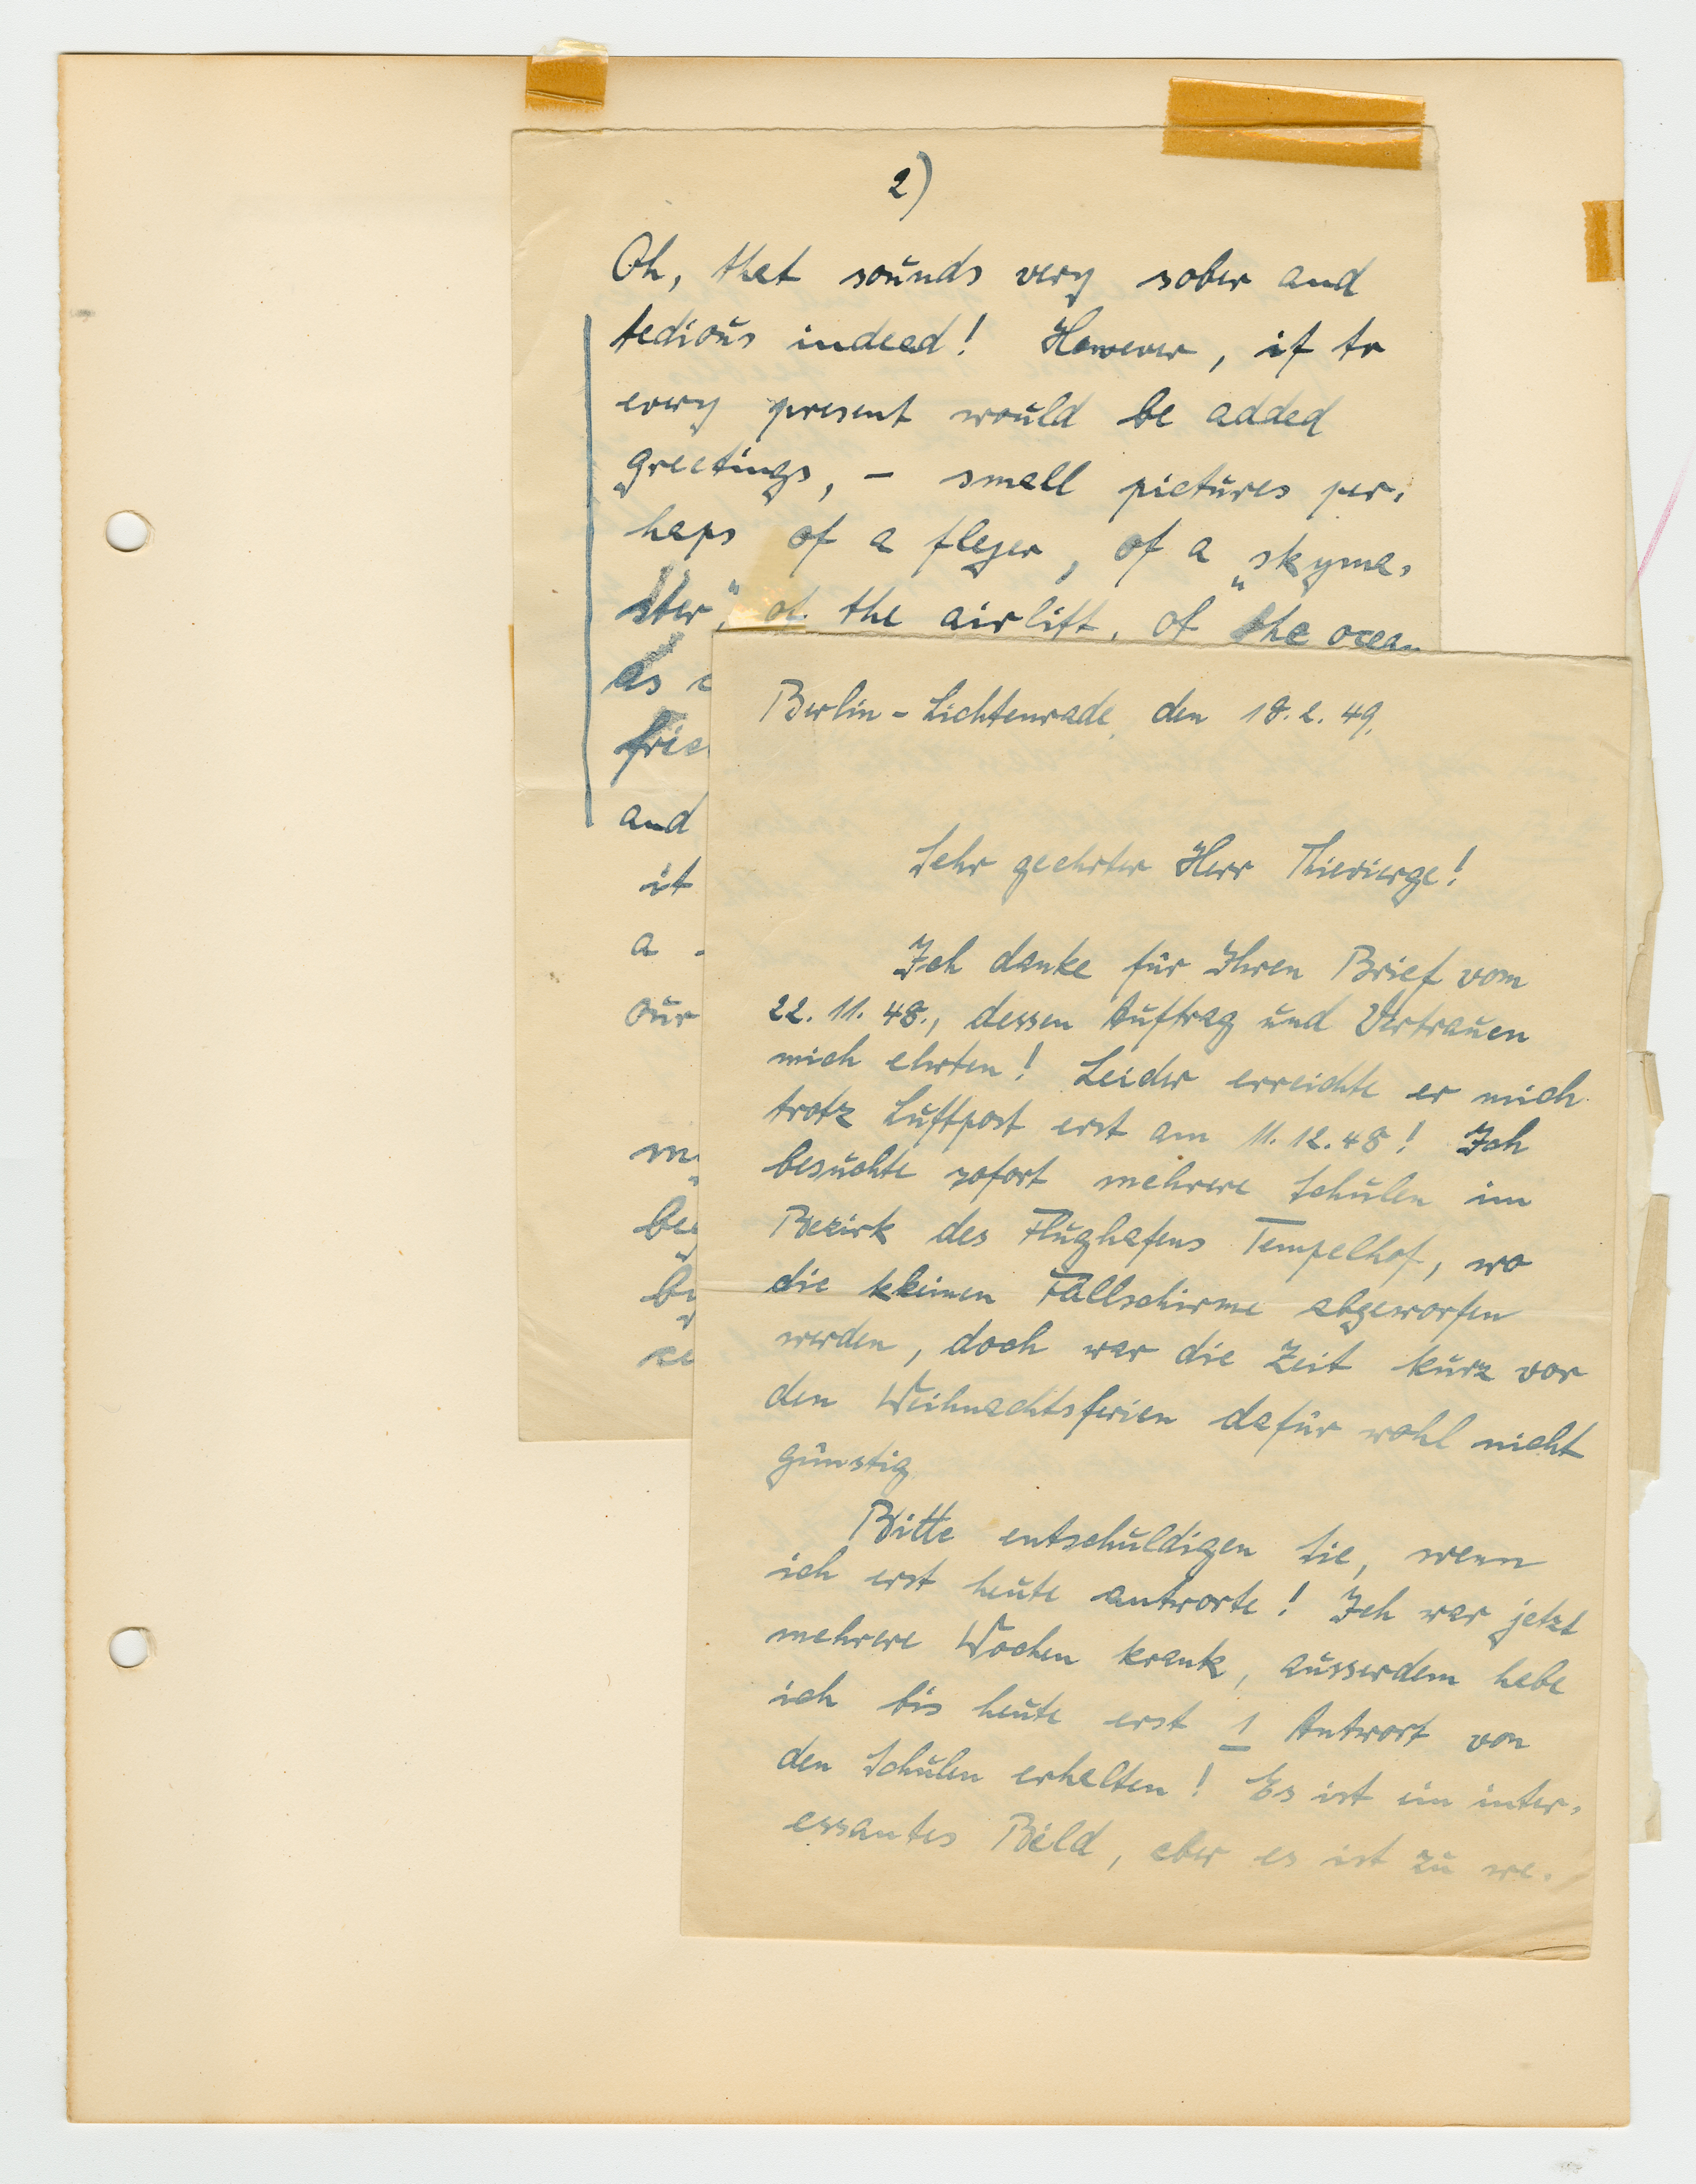 2)
Oh, that sounds very sober and
tedious indeed! However, if to
every present would be added
greetings, – small pictures per-
haps of a fleyer, of a „skyma-
ster“, of the airlift, of the ocean
as
and
it
a
our
Berlin-Lichtenrade, den 18.2.49.
Sehr geehrter Herr
Ich danke für Ihren Brief vom
22. 11. 48., dessen Auftrag und Vertrauen
mich ehrten! Leider erreichte er mich
trotz Luftpost erst am 11. 12. 48! Ich
besuchte sofort mehrere Schulen im
Bezirk des Flughafens Tempelhof, wo
die kleinen Fallschirme abgeworfen
werden, doch war die Zeit kurz vor
den Weihnachtsferien dafür wohl nicht
günstig
Bitte entschuldigen Sie, wenn
ich erst heute antworte! Ich war jetzt
mehrere Wochen krank, ausserdem habe
ich bis heute erst 1 Antwort von
den Schulen erhalten! Es ist ein inter-
essantes Bild, aber es ist zu we-